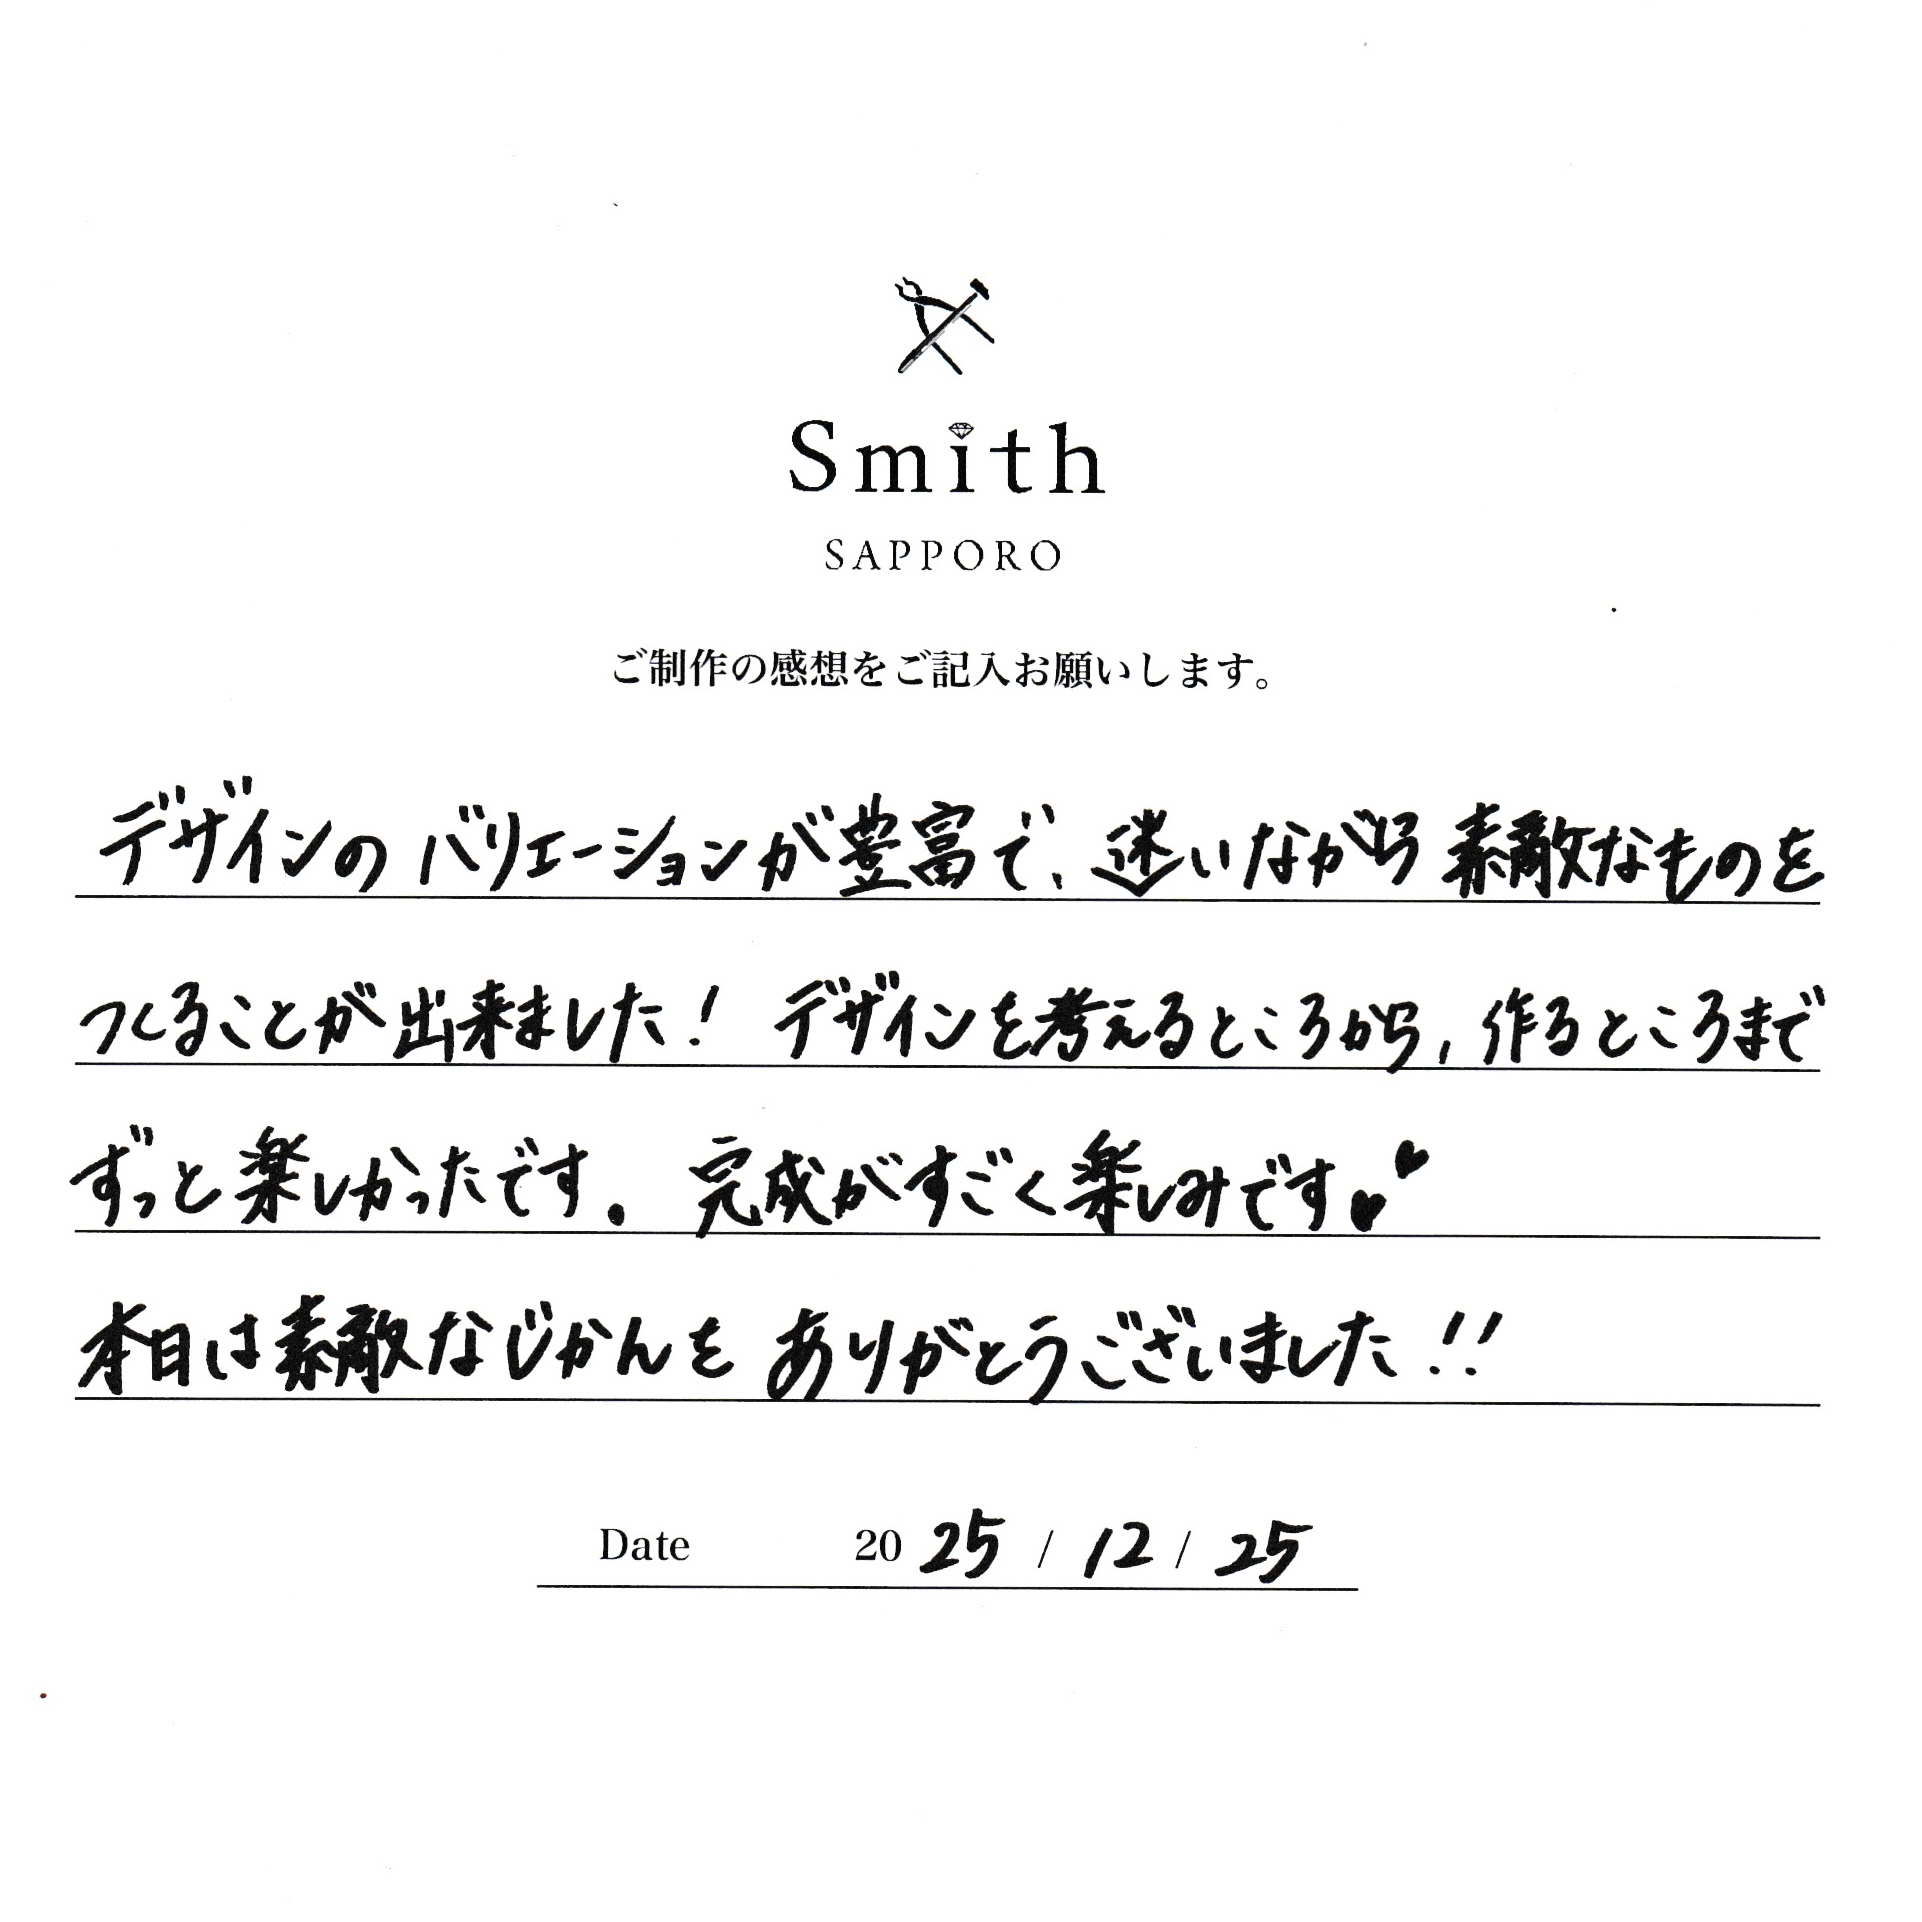 Smith
SAPPORO
ご制作の感想をご記入お願いします。
デザインのバリエーションが豊富で、迷いながら素敵なものを
つくることが出来ました！ デザインを考えるところから、作るところまで
ずっと楽しかったです。 完成がすごく楽しみです♥♥
本日は素敵なじかんをありがとうございました!!
Date 2025 / 12 / 25